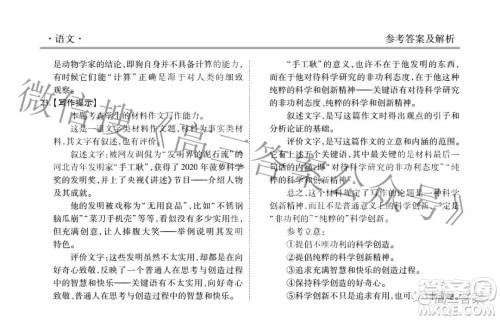 ·语文·
参考答案及解析
是动物学家的结论，即狗自身并不具备计算的能力，
它们能“计算”正确，是源于对人类的细致的观
察。
23.【写作提示】
本题考查学生的材料作文写作能力。
这是一道文字类材料作文题，材料为事实类材
料，其文字可分为叙述文字和评价文字。
叙述文字：被网友调侃为“发明界的泥石流”的
河北青年发明家“手工耿”，获得2020年菠萝科学
奖的发明奖，并上了央视《讲述》节目——介绍人物
及其成就。
他的发明被戏称为“无用良品”，比如“不锈钢
脑瓜崩”“菜刀手机壳”等等，看似没有多少实用性，
但充满创意，让人捧腹大笑——发明的特点和
意义。
评价文字：这些发明虽然不实用，却是在向好
奇心致敬，反映了一个普通人在思考与创造过程中
的智慧和快乐——关键语有对不实用，却是在向
好奇心致敬，普通人在思考与创造过程中的智慧
和快乐。
“手工耿”的意义，也许不在于他发明的东西，
而在于他对待科学研究的非功利态度，在于他这种
纯粹的科学和创新精神——关键语有对待科学研究
的非功利态度，纯粹的科学和创新精神。
叙述文字，是写这篇作文时的叙述点的引子和
分析论证的基础。
评价文字，是写这篇作文的立意和内涵的范围。
它有上述五个关键语，其中最关键的是材料最后一
句话中的两点，即“对待科学研究的非功利态度”“纯
粹的科学和创新精神”。
总之，这则材料规定了写作的论题——科学精
神和科学创新，而且不是普通意义上的科学创新，一定
是“非功利的”“纯粹的”科学创新。
参考立意：
①提倡不唯功利的科学创造；
②提倡纯粹的科学创造；
③追求充满智慧且快乐的科学创造；
④保持好奇心的科学创造；
⑤科学创新不求有用，但求充满智慧和快乐。
微信搜《高三答案公众号》